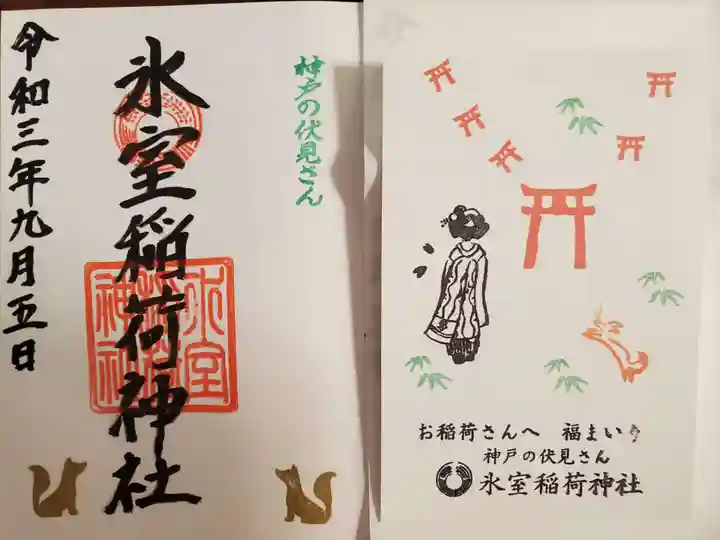 神戸の伏見さん
氷室稲荷神社
令和三年九月五日
氷室稲荷神社
お稲荷さんへ 福まいり
神戸の伏見さん
氷室稲荷神社